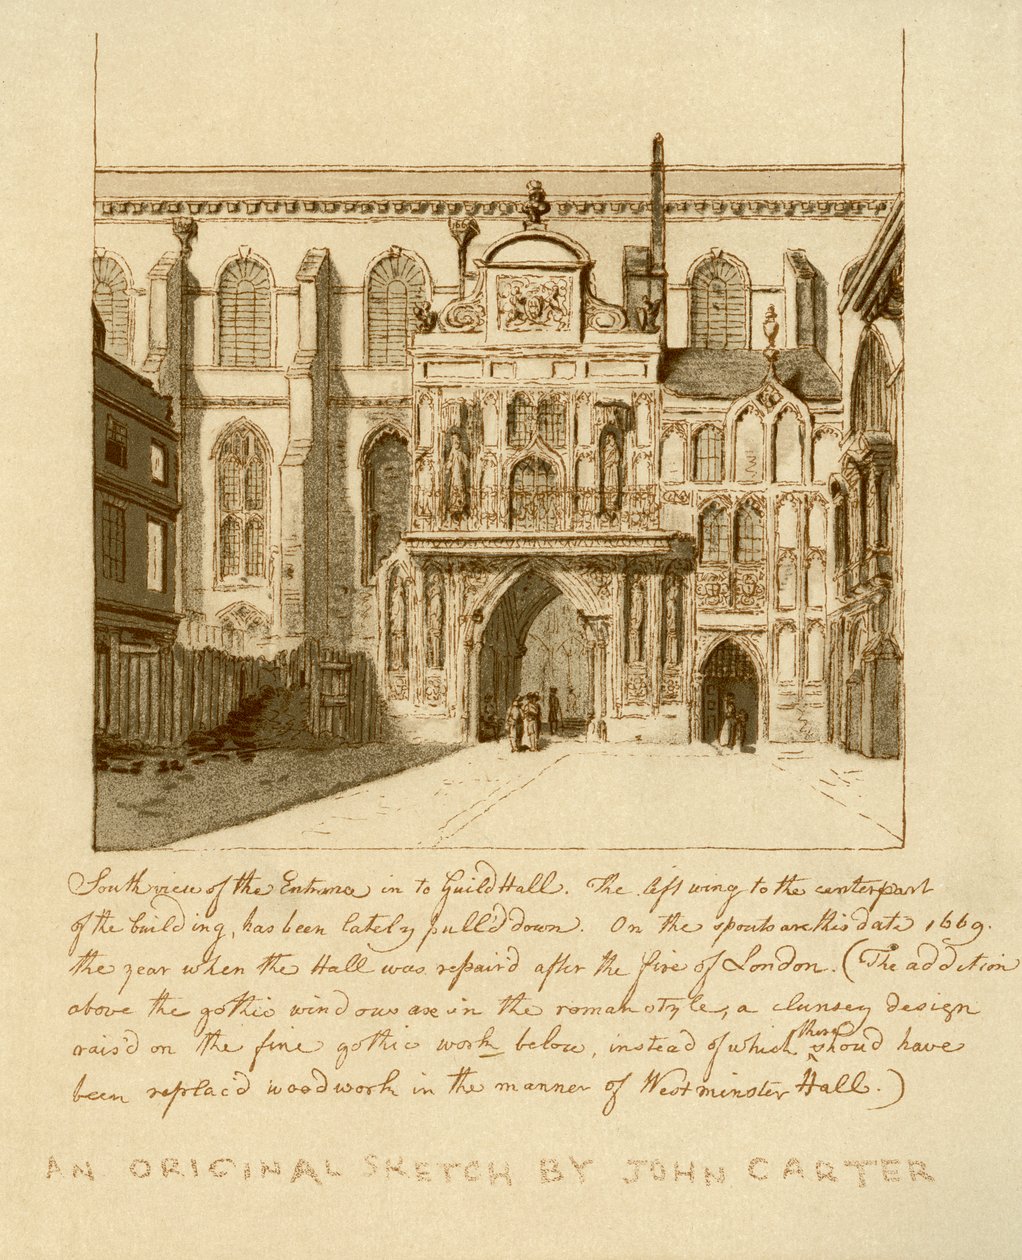 South view of the Entrance in to Guild Hall. The left wing to the center part
of the building, has been lately pull'd down. On the spouts are this date 1669.
the year when the Hall was repair'd after the fire of London. (The addition
above the gothic windows are in the roman style, a clumsey design
rais'd on the fine gothic work below, instead of which there shoud have
been replac'd wood work in the manner of Westminster Hall.)
AN ORIGINAL SKETCH BY JOHN CARTER